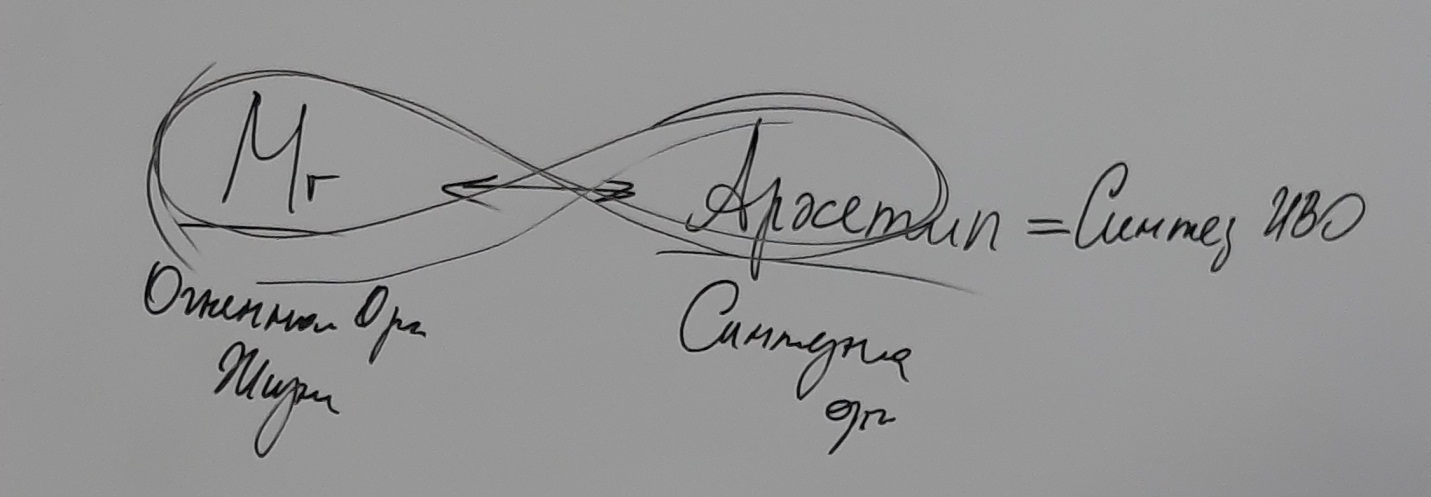 Мг ↔ Архетип = Синтез ИВО
Огненная Орг
Жизни
Синтезна